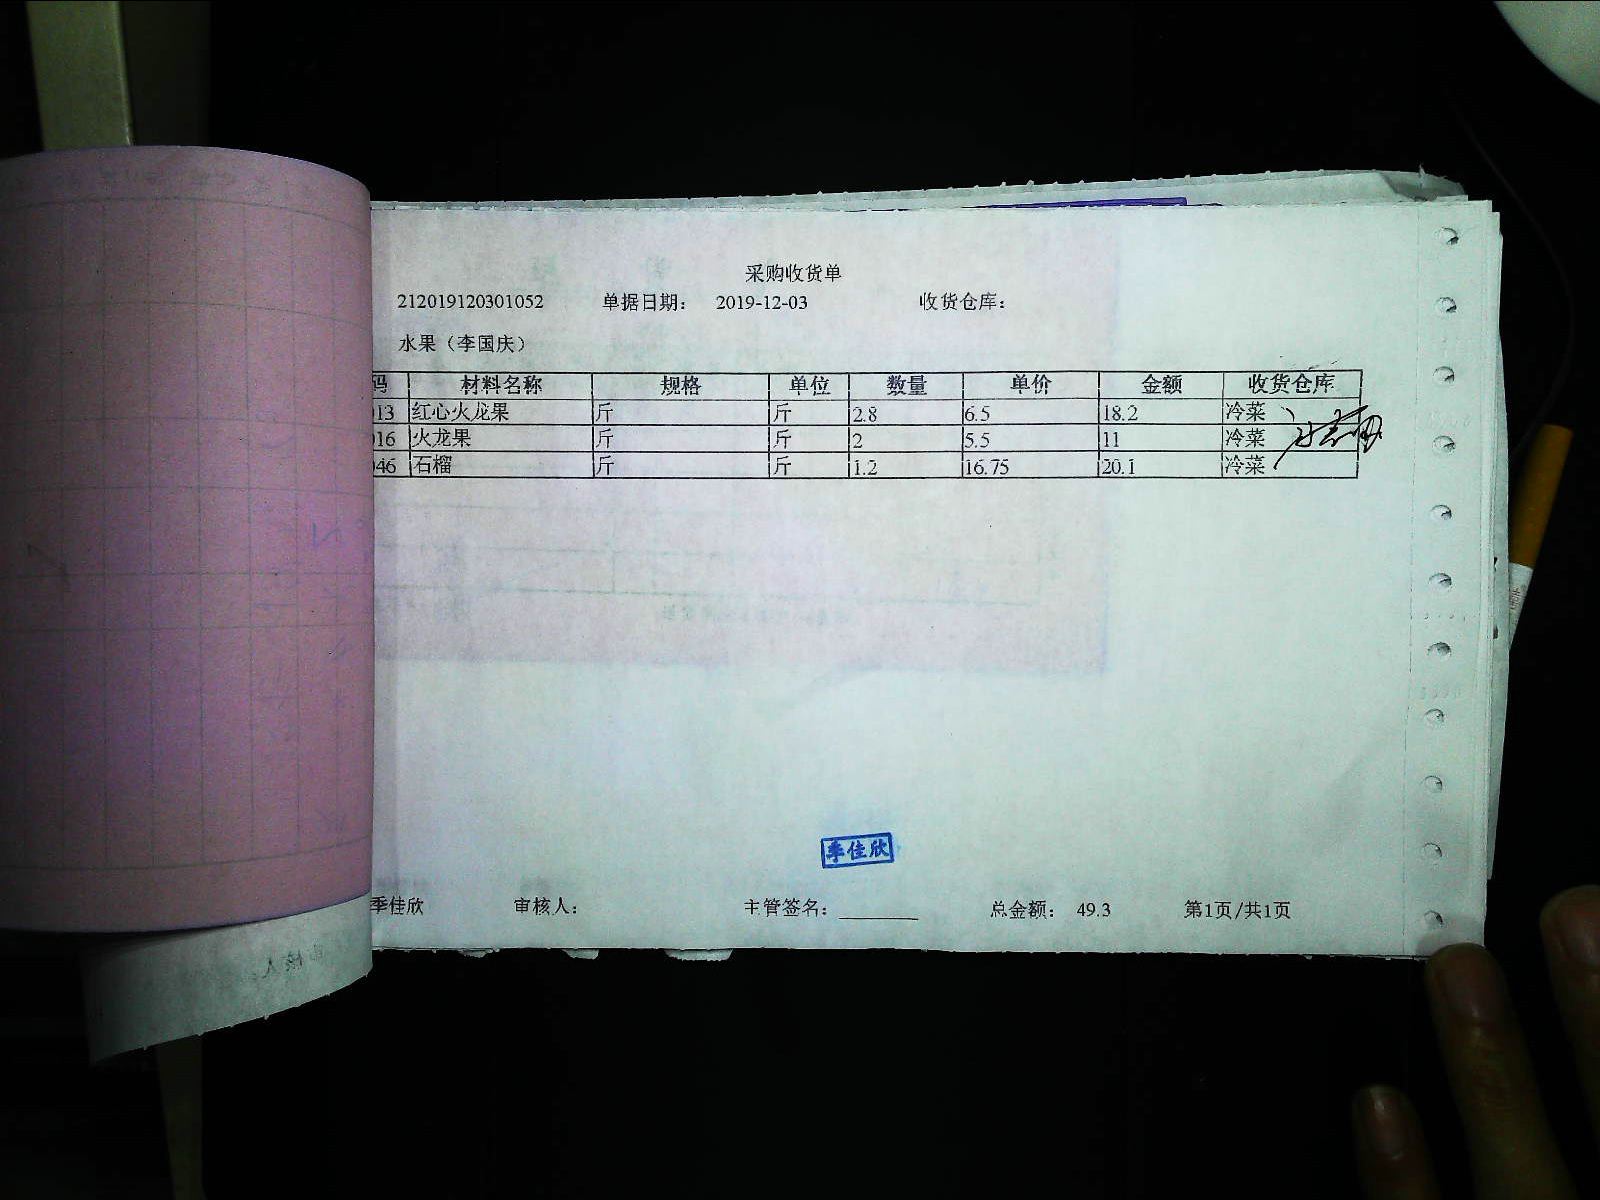 采购收货单
212019120301052 单据日期： 2019-12-03 收货仓库：
水果（李国庆）
码 材料名称 规格 单位 数量 单价 金额 收货仓库
013 红心火龙果 斤 斤 2.8 6.5 18.2 冷菜
016 火龙果 斤 斤 2 5.5 11 冷菜
046 石榴 斤 斤 1.2 16.75 20.1 冷菜
季佳欣
季佳欣 审核人： 主管签名：________ 总金额： 49.3 第1页/共1页